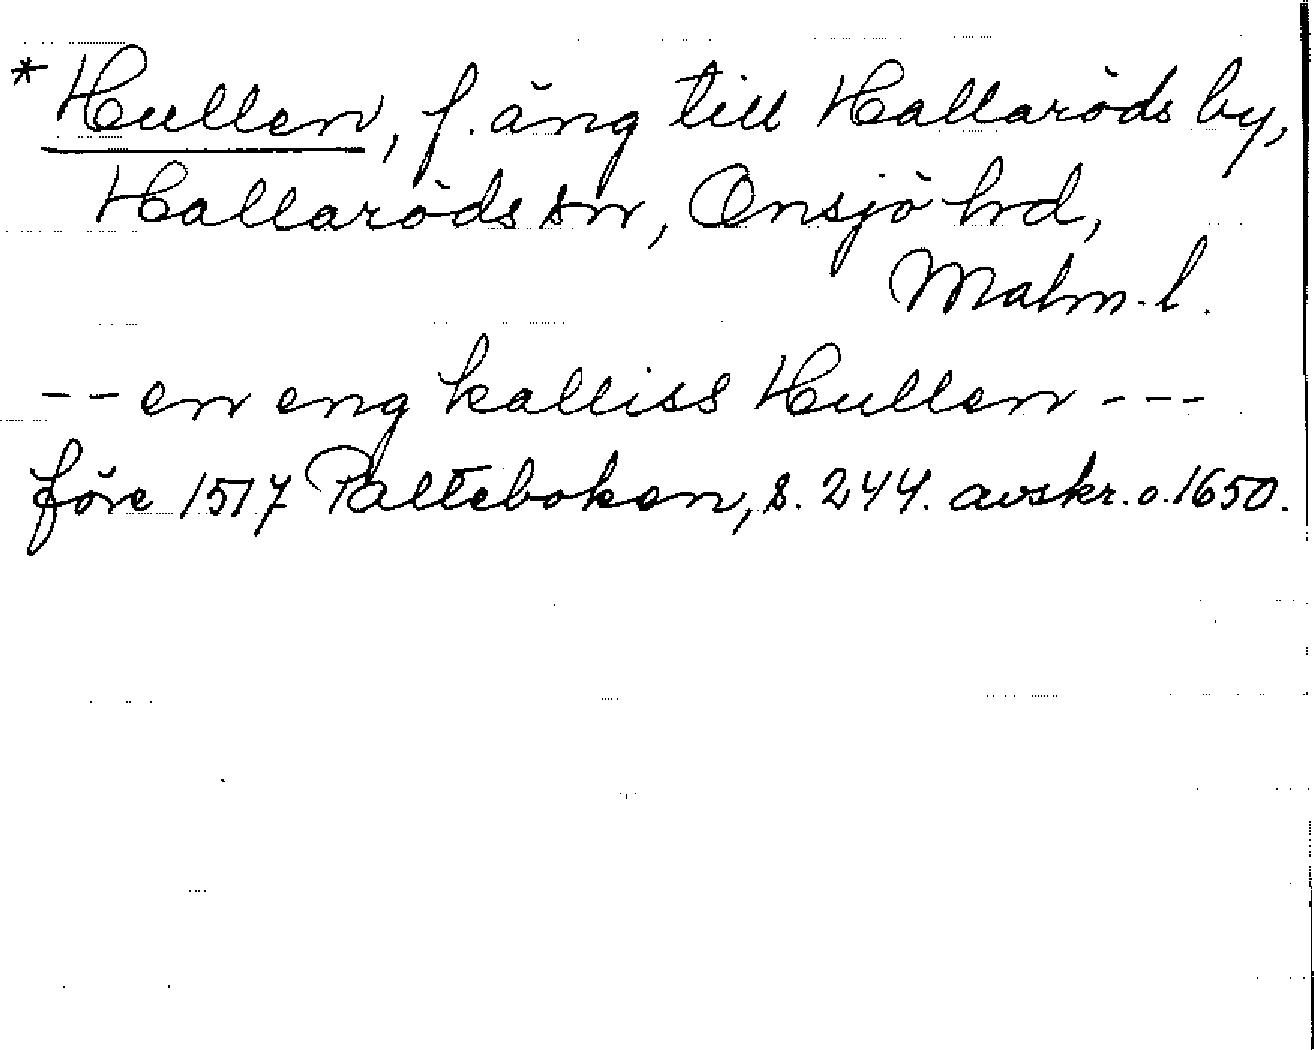 * Hullen, f. äng till Hallaröds by,
Hallaröds sn, Onsjö hrd,
Malm. l.
-- en eng kalliss Hullen ---
före 1517 Palteboken, s. 244. avskr. o. 1650.